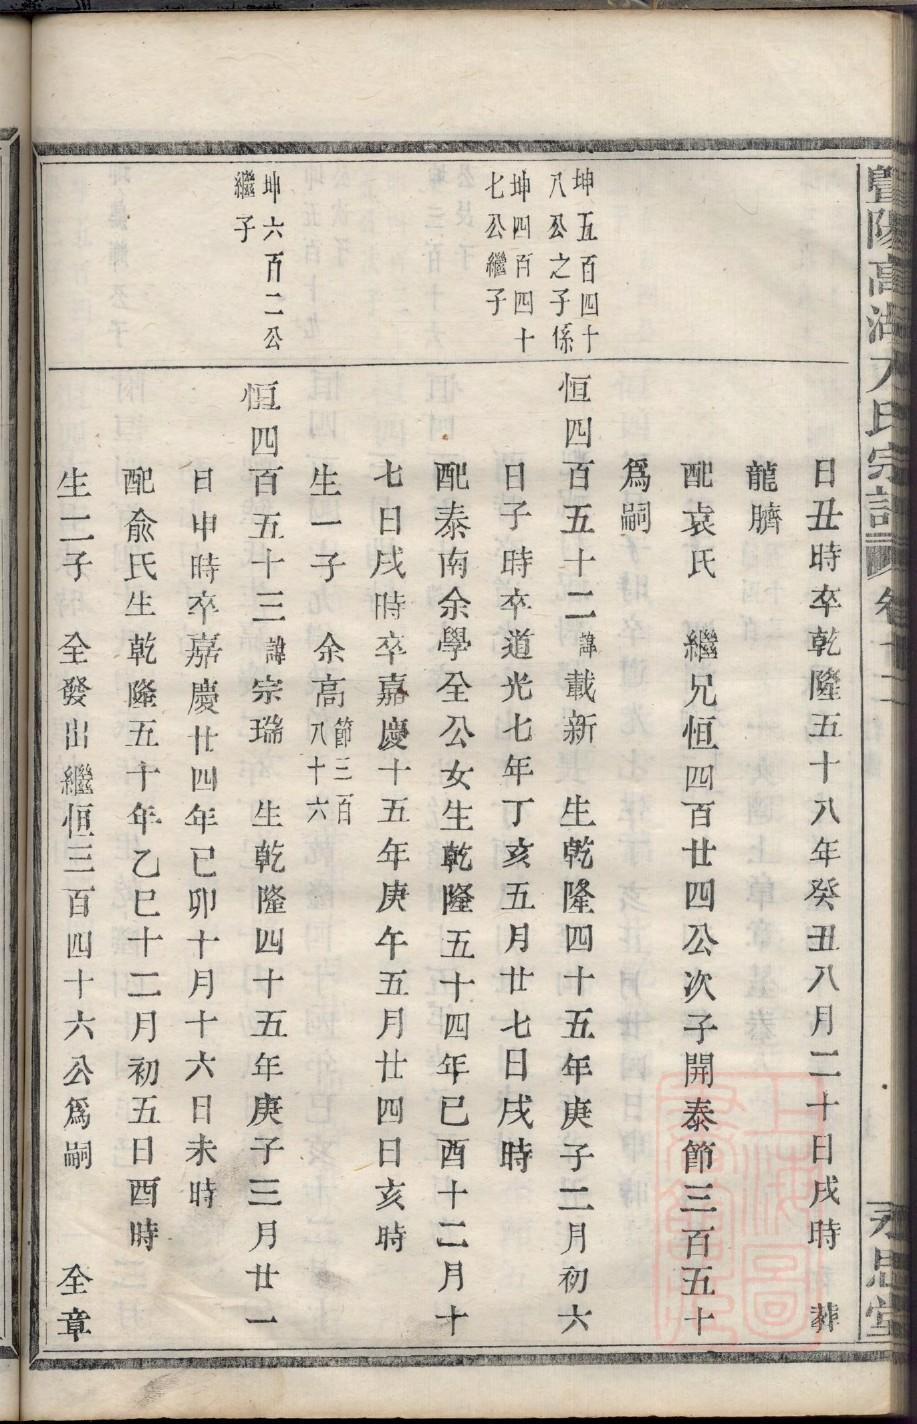 暨陽高湖 氏宗譜 卷十二
永思堂
日丑時卒乾隆五十八年癸丑八月二十日戌時 葬
龍臍
配袁氏 繼兄恒四百廿四公次子開泰節三百五十
爲嗣
坤五百四十
八公之子係
坤四百四十
七公繼子
恒四百五十二諱載新 生乾隆四十五年庚子二月初六
日子時卒道光七年丁亥五月廿七日戌時
配泰南余學全公女生乾隆五十四年己酉十二月十
七日戌時卒嘉慶十五年庚午五月廿四日亥時
生一子 余高節三百八十六
坤六百二公
繼子
恒四百五十三諱宗瑞 生乾隆四十五年庚子三月廿一
日申時卒嘉慶廿四年己卯十月十六日未時
配俞氏生乾隆五十年乙巳十二月初五日酉時
生二子 全發出繼恒三百四十六公爲嗣 全章